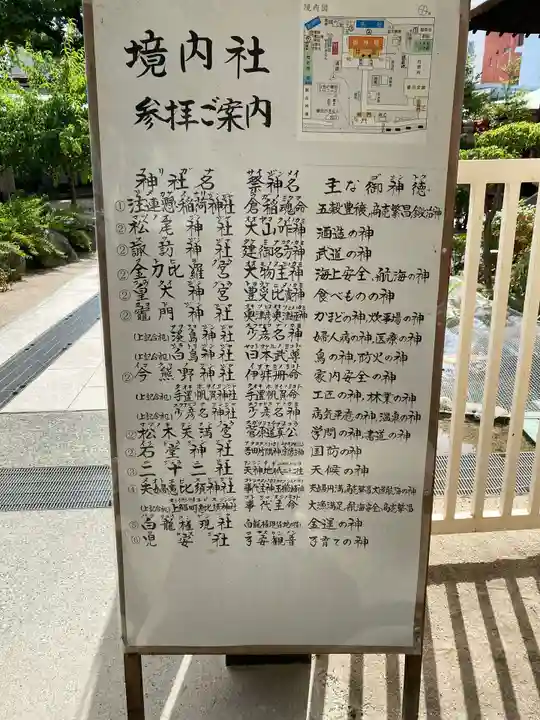 境内図
境内社
参拝ご案内
神社名 祭神名 主な御神徳
① 注連懸稲荷神社 倉稲魂命 五穀豊穣、商売繁昌、鍛冶の神
② 松尾神社 大山咋神 酒造の神
② 諏訪神社 建御名方神 武道の神
② 金刀比羅宮 大物主神 海上安全、航海の神
② 皇大神社 豊受比売神 食べものの神
② 竈門神社 かまどの神、炊事場の神
(上記合祀) 淡島神社 少彦名神 婦人病の神、医療の神
(上記合祀) 白鳥神社 日本武尊 鳥の神、防火の神
② 今熊野神社 伊弉冊命 家内安全の神
(上記合祀) 手置帆負神社 手置帆負命 工匠の神、林業の神
(上記合祀) 少彦名神社 少彦名神 病気平癒の神、温泉の神
② 松木天満宮 菅原道真公 学問の神、書道の神
② 石堂神社 国防の神
③ 二十二社 天神地祇二十二社 天候の神
④ 夫婦恵比須神社 夫婦円満、商売繁昌、大漁航海の神
(上記合祀) 事代主命 大漁満足、航海安全、商売繁昌
⑤ 白龍権現社 金運の神
⑥ 児安社 子安観音 子育ての神